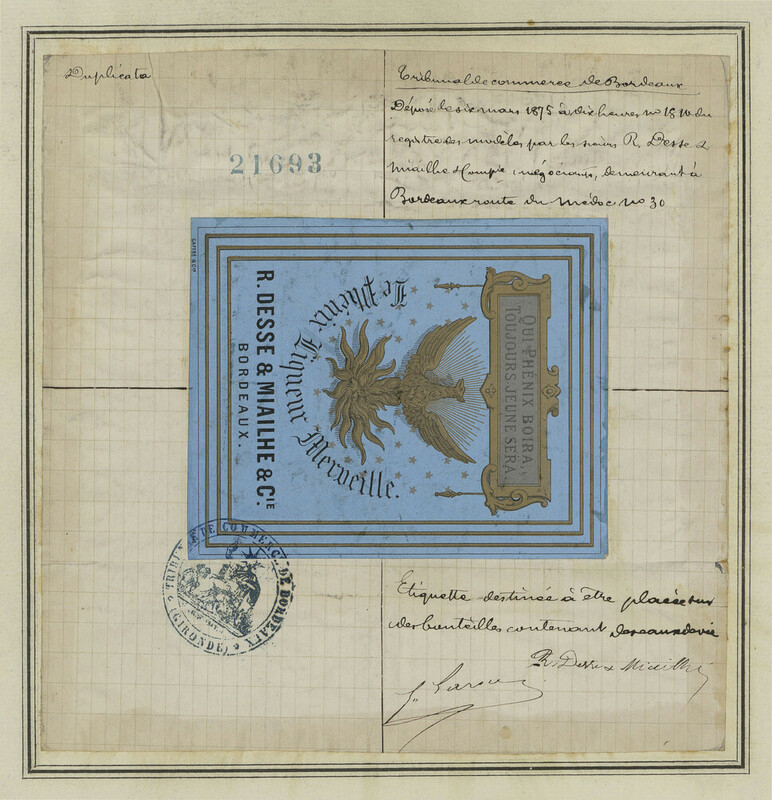 Duplicata
21693
Tribunal de commerce de Bordeaux
Déposé le six mars 1875 à dix heures no 1810 du
registre des modèles par les sieurs R. Desse &
Miailhe & Compie négociants, demeurant à
Bordeaux route du Médoc no 30
QUI PHÉNIX BOIRA,
TOUJOURS JEUNE SERA.
Le Phénix Liqueur Merveille.
R. DESSE & MIAILHE & CIE
BORDEAUX.
TRIBUNAL DE COMMERCE DE BORDEAUX
(GIRONDE)
Etiquette destinée à être placée sur
des bouteilles contenant des eaux de vie
R. Desse & Miailhe